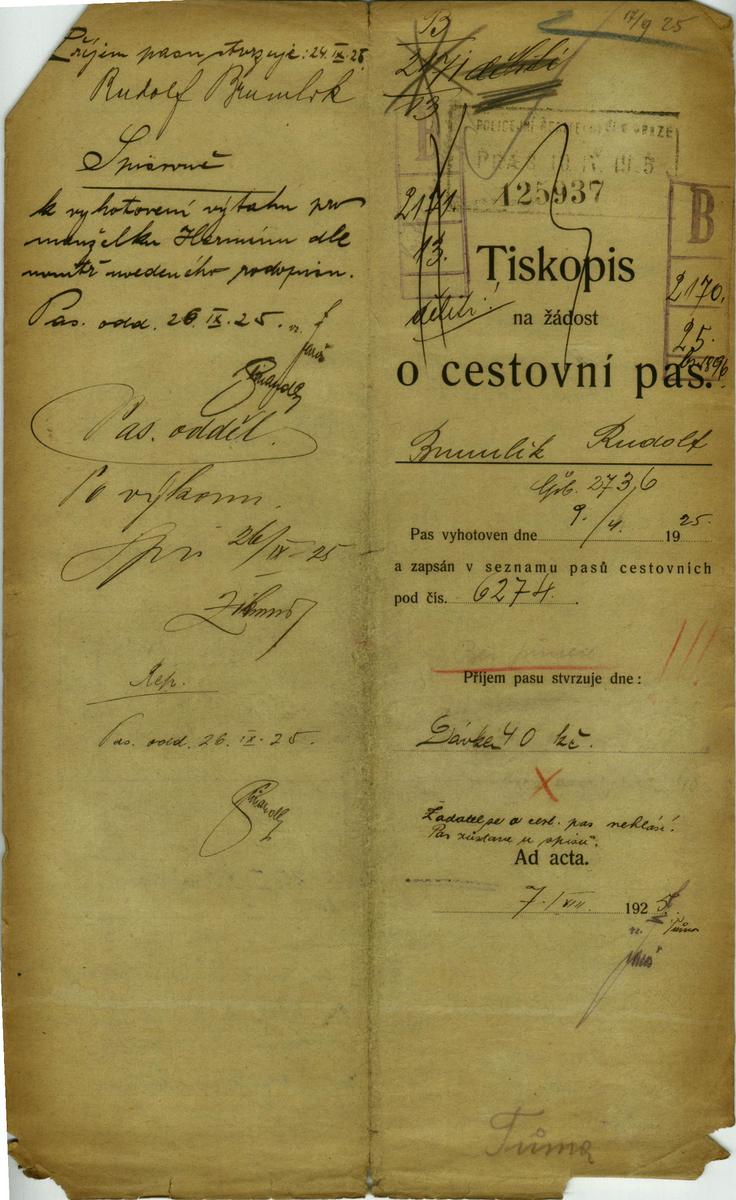 Příjem pasu stvrzuje: 24.IX.25
Rudolf Brumlik
Spisovně
k vyhotovení výtahu pro
manželku Herminu dle
uvnitř uvedeného rodopisu.
Pas. odd. 26.IX.25.
Pas. odděl.
Po výkonu
26/IX-25
Rep.
Pas. odd. 26.IX.25.
17/9 25
B
2171
13
POLICEJNÍ ŘEDITELSTVÍ V PRAZE
125937
B
2171.
13.
B
2170.
25.
Tiskopis
na žádost
o cestovní pas.
Brumlik Rudolf
2736
Pas vyhotoven dne 9./4. 1925.
a zapsán v seznamu pasů cestovních
pod čís. 6274.
!!!
Příjem pasu stvrzuje dne:
Dávka 40 kč.
X
Žadatel se o cest. pas nehlásí.
Pas zůstane u spisů.
Ad acta.
7./VIII. 1925.
Tůma
Tůma